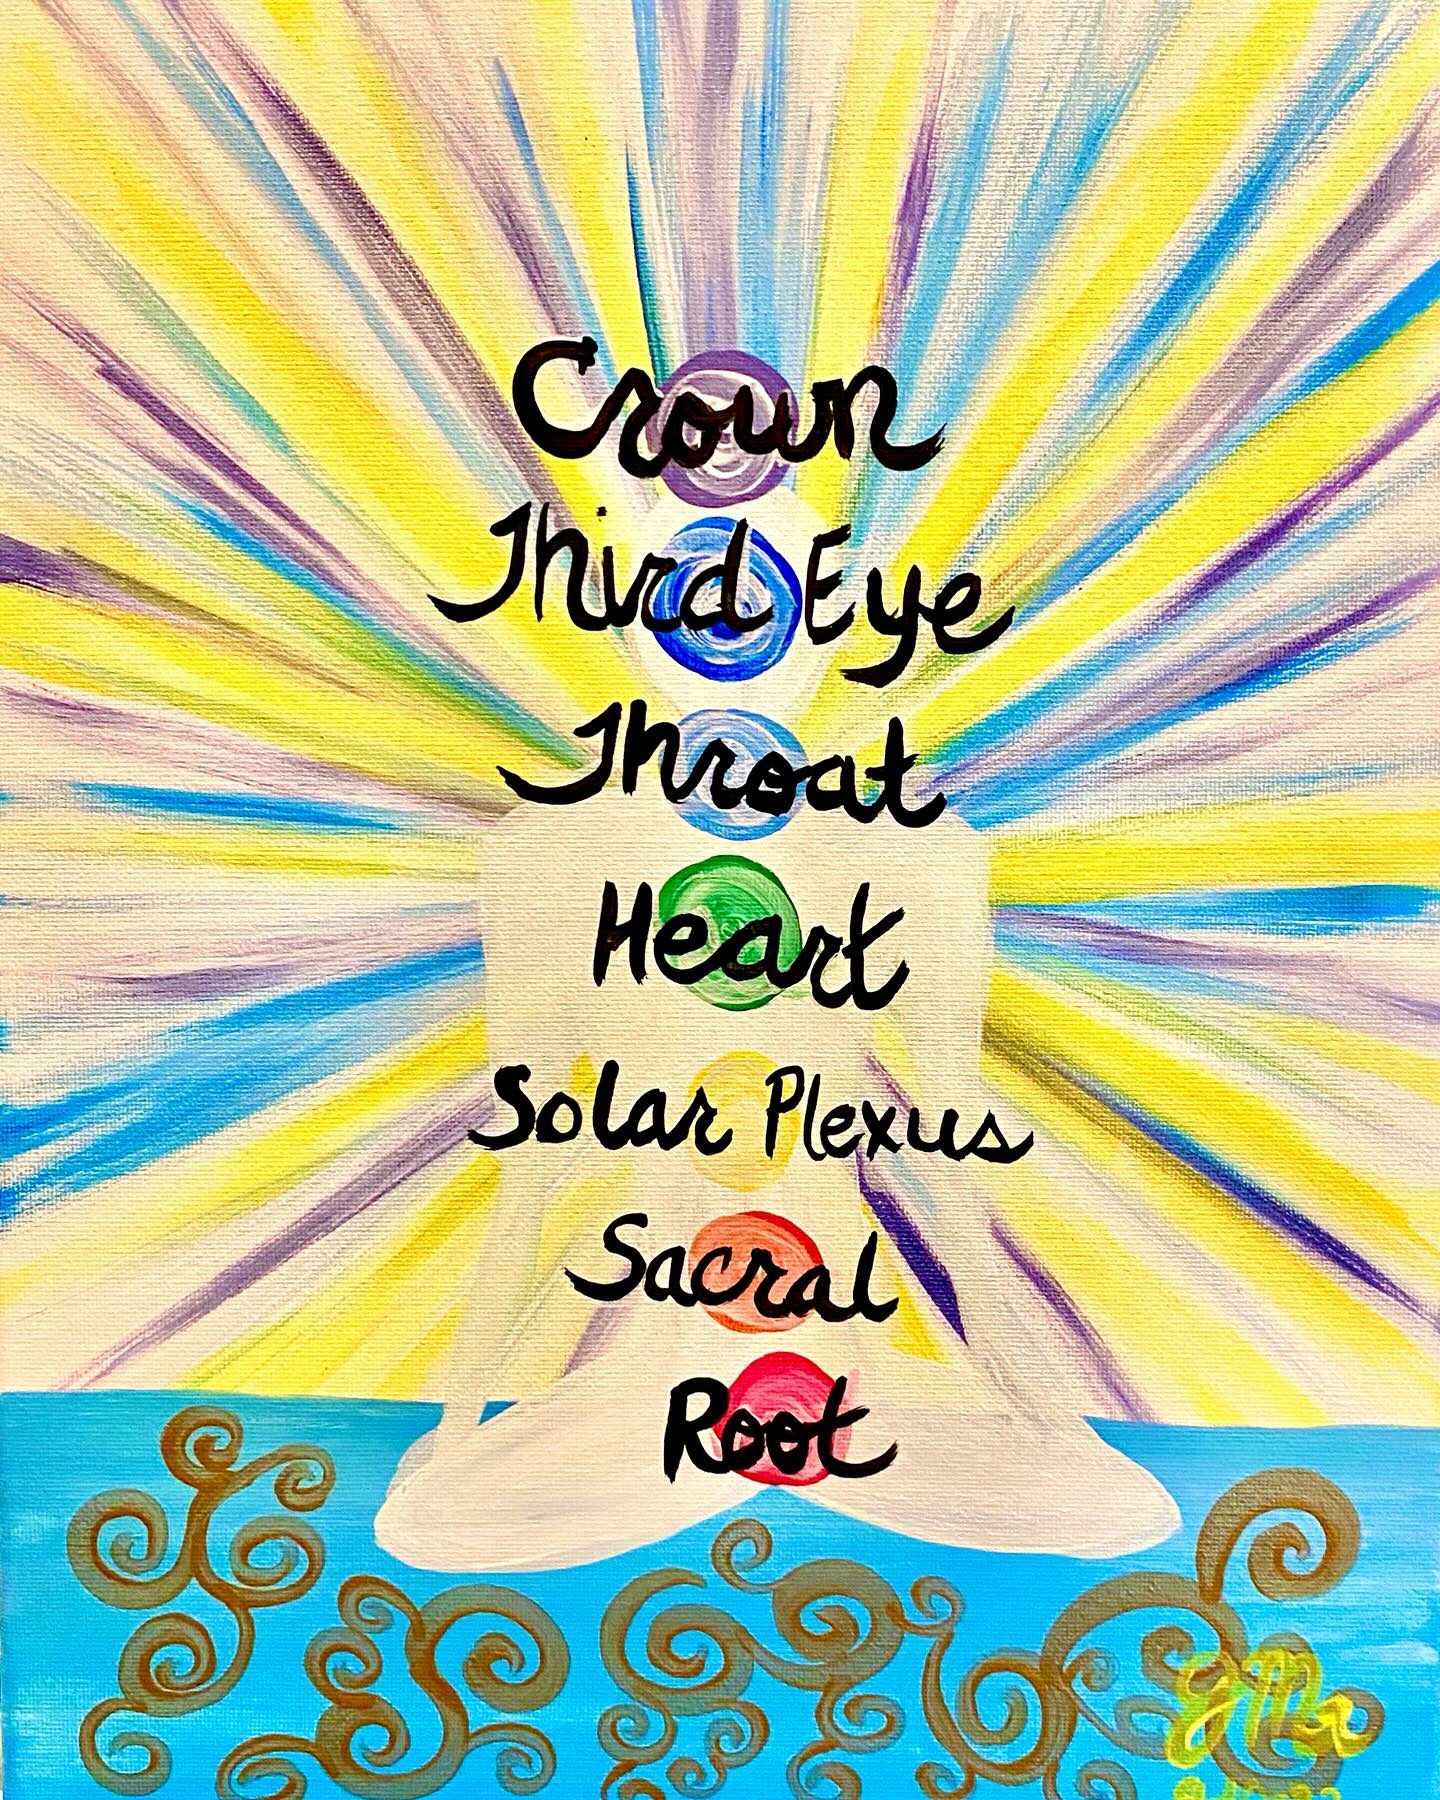 Crown
Third Eye
Throat
Heart
Solar Plexus
Sacral
Root